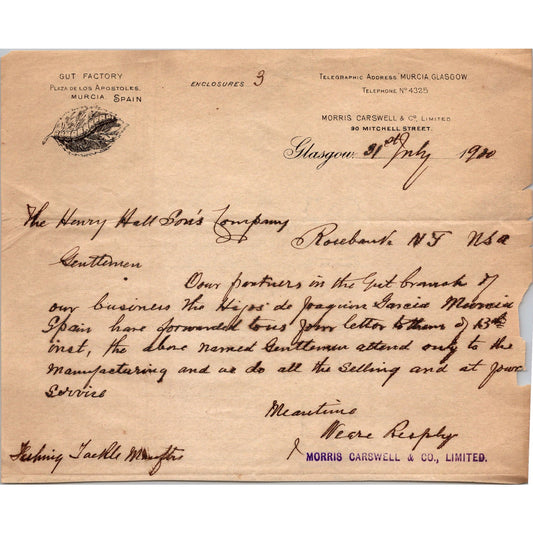 GUT FACTORY
PLAZA DE LOS APOSTOLES.
MURCIA. SPAIN
ENCLOSURES 3
TELEGRAPHIC ADDRESS MURCIA, GLASGOW
TELEPHONE Nº 4325
MORRIS CARSWELL & Cº, LIMITED
90 MITCHELL STREET.
Glasgow, 31st July 1900
The Henry Hall Son's Company
Rosebank N Y Usa
Gentlemen
Our partners in the Gut branch of
our business the Hijos de Joaquin Garcia Murcia
Spain have forwarded to us your letter to them of 13th
inst, the above named Gentlemen attend only to the
manufacturing and we do all the Selling and at your
Service
Meantime
We are Resply
Fishing Tackle Manftrs
MORRIS CARSWELL & CO., LIMITED.